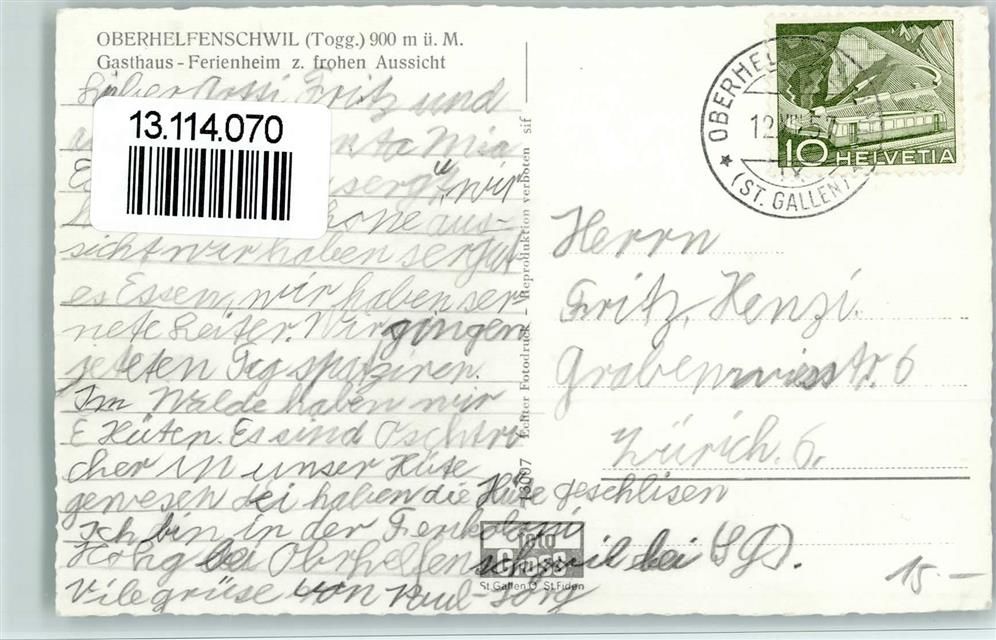 OBERHELFENSCHWIL (Togg.) 900 m ü. M.
Gasthaus - Ferienheim z. frohen Aussicht
Lieber Fritz und
13.114.070
Mia
wir
aus-
sicht wir haben sergut
es Essen, wir haben ser
nete Leiter. Wir gingen
jedeten Tag spaziren.
Im Walde haben wir
E Hüten. Es sind
cher in unser Hüte
gewesen haben die Hüte geschlisen
Ich bin in der Ferikoloni
bei Obrhelfenschwil bei (SG).
Vile grüse von Paul-Jörg
13007 Echter Fotodruck - Reproduktion verboten sif
foto
Gross
St.Gallen O St.Fiden
OBERHE
12.VIII.57
(ST. GALLEN)
10 HELVETIA
Herrn
Fritz Henzi.
Grabenwiesstr. 6
Zürich. 6.
15.-